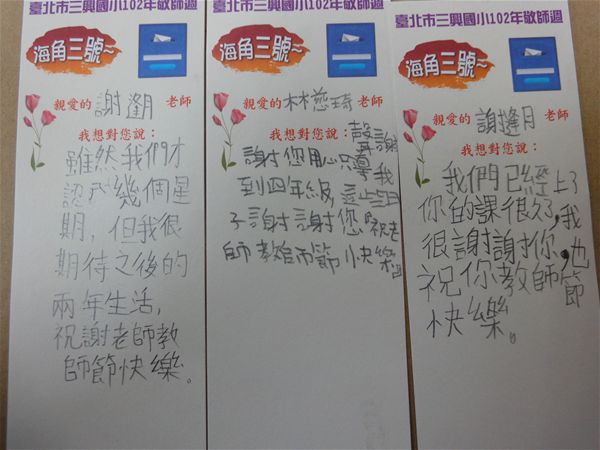 臺北市三興國小102年敬師週
海角三號~
親愛的 謝逢月 老師
我想對您說：
雖然我們才
認識幾個星
期，但我很
期待之後的
兩年生活，
祝謝老師教
師節快樂。
臺北市三興國小102年敬師週
海角三號~
親愛的 林慈琦 老師
我想對您說：
謝您用心
到四年級
子謝謝您
師教師節快樂
臺北市三興國小102年敬師週
海角三號~
親愛的 謝逢月 老師
我想對您說：
我們已經上了
你的課很久，我
很謝謝你，也
祝你教師節
快樂。